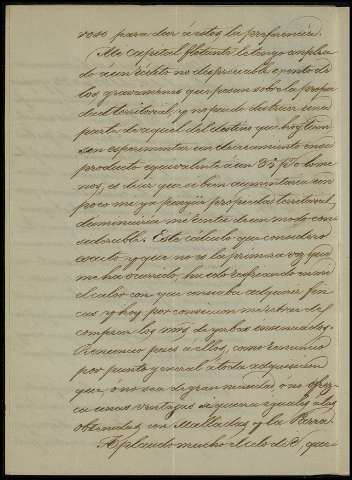 roso para dar á estos, la preferencia.
Mi capital flotante le tengo emplea-
do á un rédito no despreciable exento de
los gravámenes que pesan sobre la propie-
dad territorial, y no puedo destruir una
parte de aquel del destino que hoy tiene
sin esperimentar un decrecimiento en su
producto equivalente á un 3½ p% lo me-
nos, es decir que si bien aumentaria un
poco mi ya pingüe propiedad territorial,
disminuiria mi renta de un modo con-
siderable. Este cálculo que considero
exacto y que no es la primera vez que
me ha ocurrido, ha ido resfriando en mi
el calor con que ansiaba adquirir fin-
cas y hoy, por consecuencia me retrae de
comprar los de yerbas enunciados.
Renuncio pues á ellos, como renuncio
por punto general á toda adquisicion
que, ó no sea de gran necesidad ó no ofrez-
ca unas ventajas siquiera iguales á las
obtenidas con Mulladas y la Parra.
Aplaudo mucho el celo de V. que